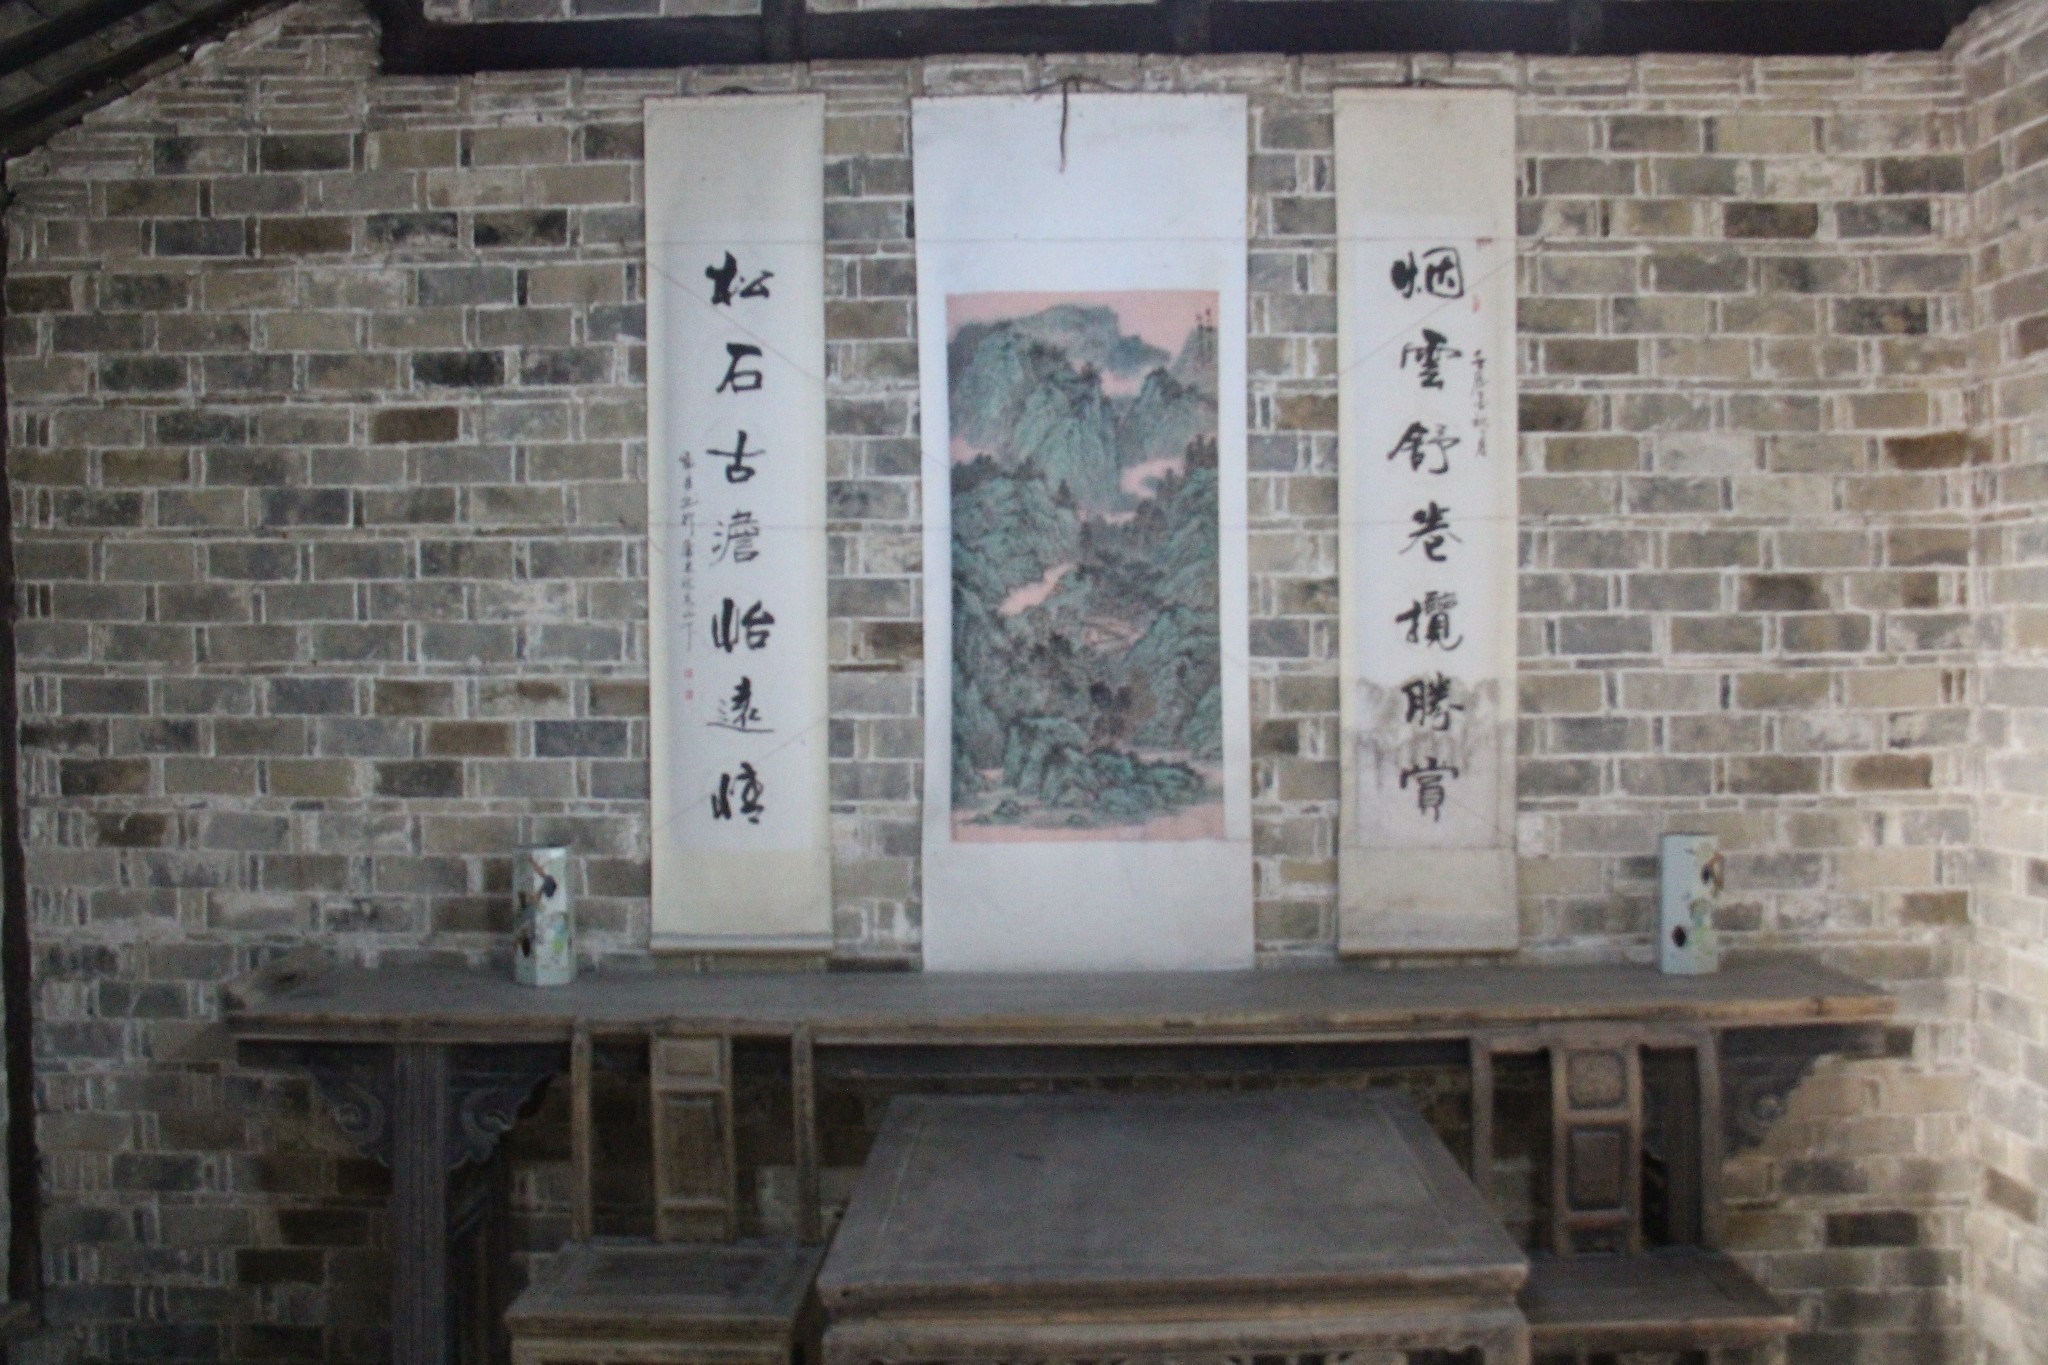 烟雲舒卷攬勝賞
松石古澹怡遠情